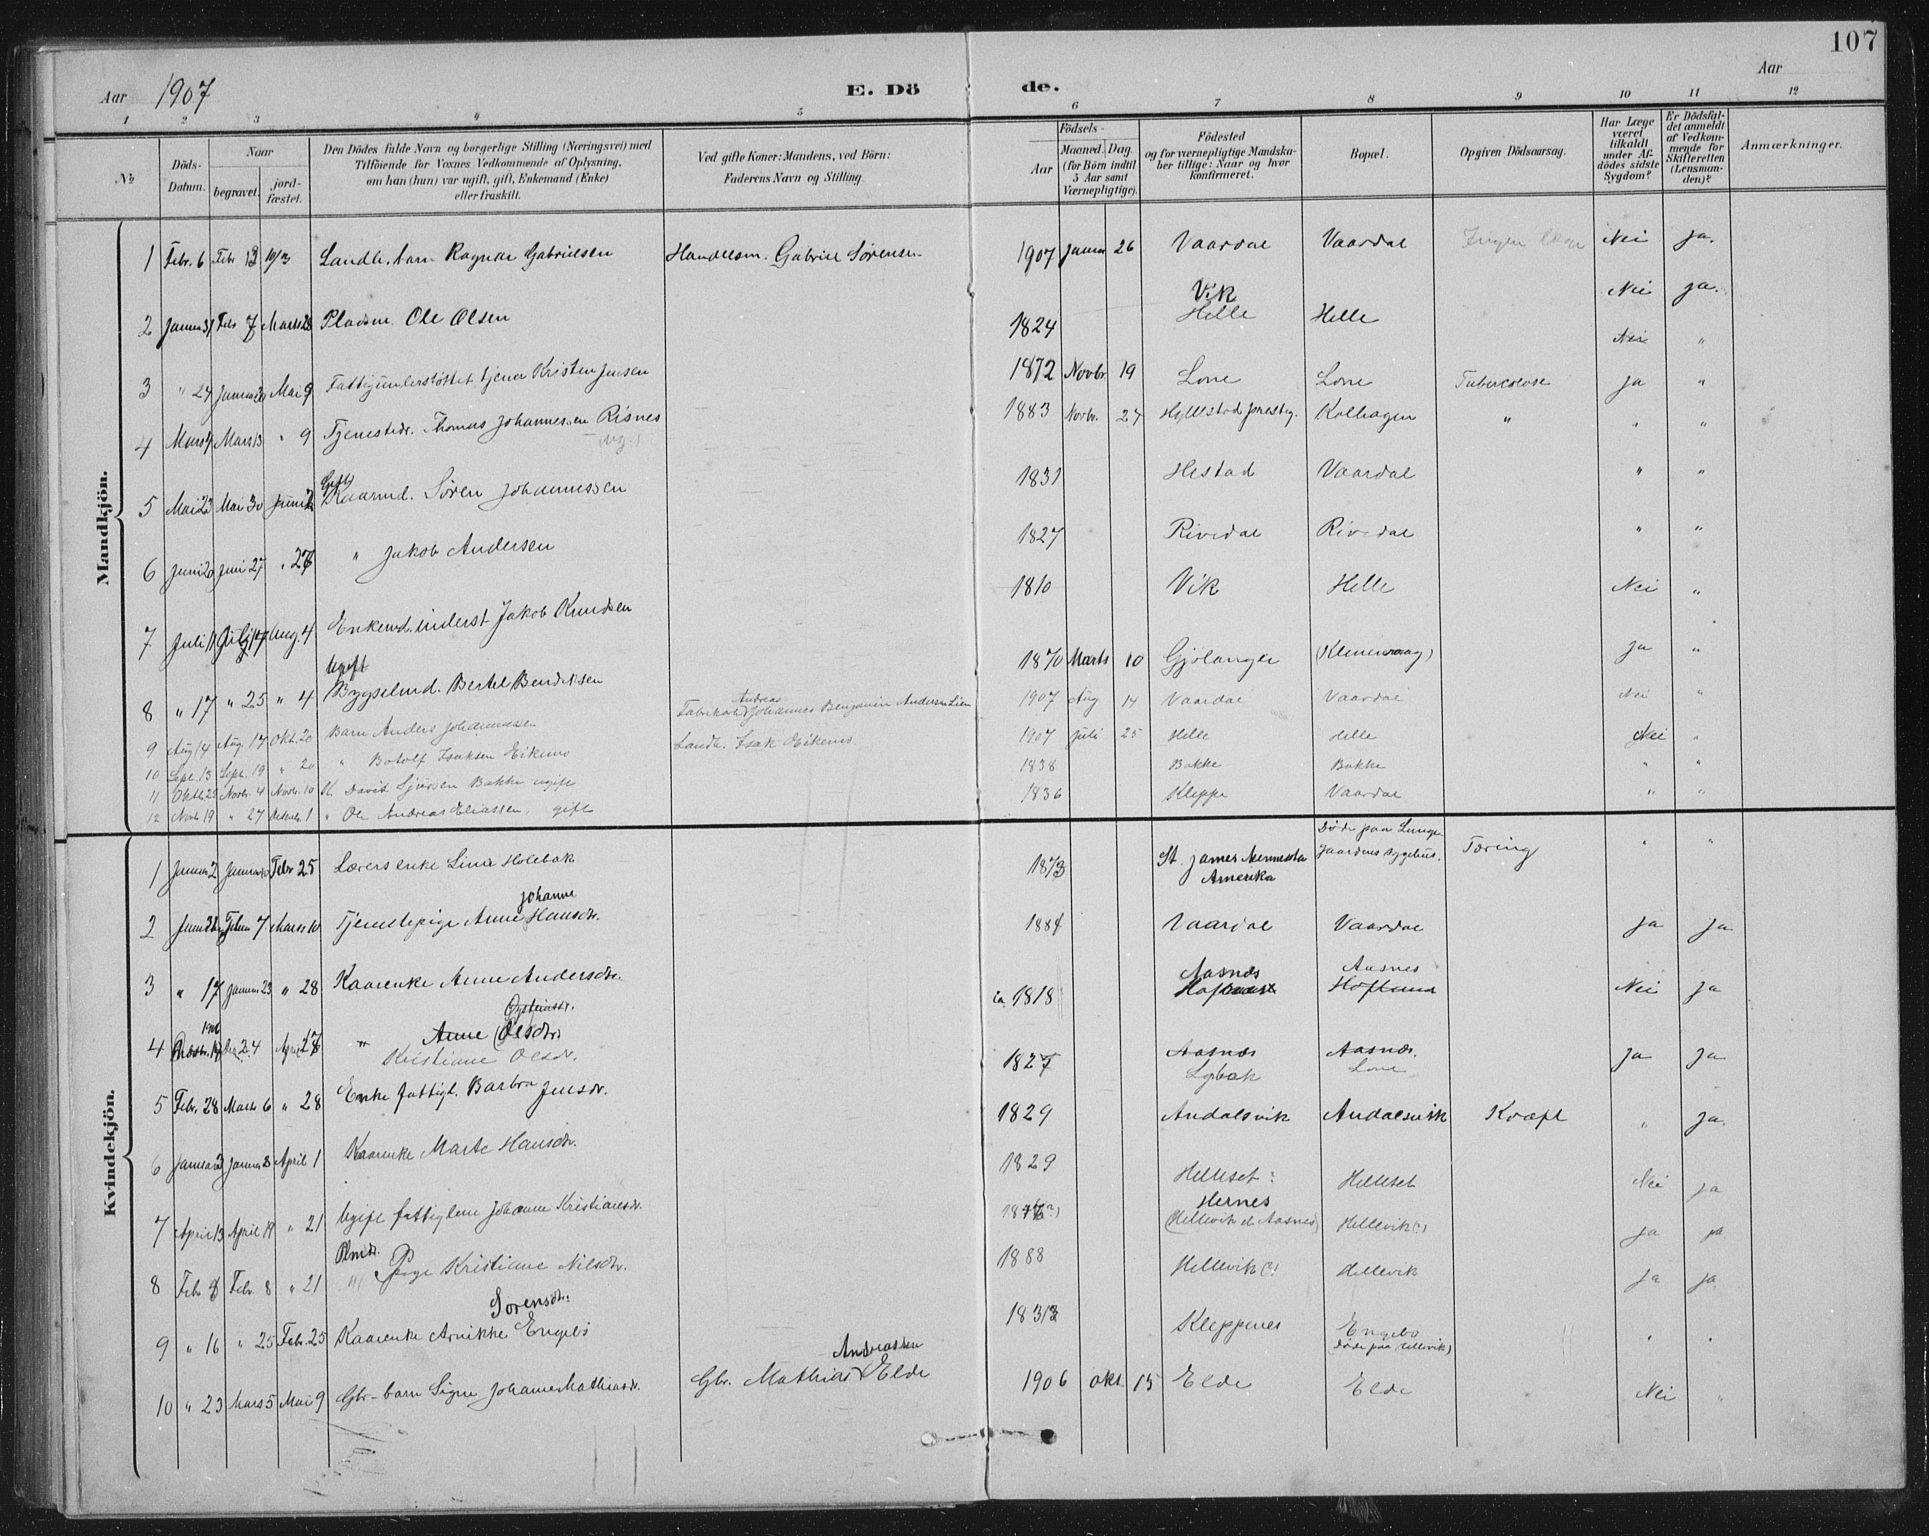 107
Aar 1907 E. Dö de. Aar
1 2 3 4 5 6 7 8 9 10 11 12
No
Döds-Datum.
Naar
begravet.
jord-fæstet.
Den Dödes fulde Navn og borgerlige Stilling (Næringsvei) med
Tilföiende for Voxnes Vedkommende af Oplysning,
om han (hun) var ugift, gift, Enkemand (Enke)
eller fraskilt.
Ved gifte Koner: Mandens, ved Børn:
Faderens Navn og Stilling.
Födsels-
Aar
Maaned. Dag.
(for Börn indtil
5 Aar samt
Værnepligtige).
Födested
og for værnepligtige Mandska-
ber tillige: Naar og hvor
konfirmeret.
Bopæl.
Opgiven Dödsaarsag.
Har Læge
været
tilkaldt
under Af-
dödes sidste
Sygdom?
Er Dödsfal-
det anmeldt
af Vedkom-
mende for
Skifteretten
(Lensman-
den)?
Anmærkninger.
Mandkjön.
1 Febr. 6 Febr 13 10/3 Landh. barn Ragnar Gabrielsen Handelsm. Gabriel Sørensen 1907 Januar 26 Vaardal Vaardal Ingen Nei Ja.
2 Januar 31 Febr 7 Marts 28 Pladsm. Ole Olsen 1824 Vik Helle Helle Nei Ja.
Nei "
3 " 24 Januar 30 Mai 9 Fattigunderstøttet tjener Kristen Jensen 1872 Novbr 19 Lone Lone Tuberculose Ja "
4 Marts 7 Marts 13 " 9 Tjenestedr. Thomas Johannessen Risnes 1883 Novbr. 27 Hyllestad presteg. Kolhagen " " "
5 Mai 23 Mai 30 Juni Gift Kaarmd. Søren Johannessen 1831 Hestad Vaardal " "
6 Juni 20 Juni 27 " " Jakob Andersen 1827 Rivedal Rivedal " "
7 Juli 11 Juli 17 Aug. 4 Enkemd. inderst Jakob Knudsen 1810 Vik Helle Nei "
8 " 17 " 25 " 4 Ugift Bygselmd. Bertel Bendiksen 1870 Marts 10 Gjølanger Ja "
9 Aug 14 Aug. 17 Okt. 20 Barn Anders Johannessen Fabrikarb. Andreas Johannes Benjamin Andersen Lien 1907 Aug 14 Vaardal Vaardal Nei "
10 Sept. 13 Sept. 19 " 20 " Botolf Isaksen Eikenes Landh. Isak Eikenes 1907 Juli 25 Helle Helle Nei "
11 Oktb. 25 Novbr. 4 Novbr. 10 David Sjursen Bakke ugift 1838 Bakke Bakke " "
12 Novb 19 " 27 Decemb. 1 " Ole Andreas Eliassen, gift 1836 Kleppe Vaardal " "
Kvindekjön.
1 Januar 2 Januar 10 Febr 25 Lærers enke Lina Holebak 1873 St. James Minnesota Amerika Døde paa Lunge gaardens Sygehus. Tæring " "
2 Febru 7. Marts 10 Tjenestepige Anne Johanne Hansdr. 1884 Vaardal Vaardal Ja Ja
3 " 17 Januar 23 " 28 Kaarenke Anne Andersdr. ca. 1818 Aasnæs Aasnes Hofland Nei Ja
4 1906 24 April " Anne Olsdr. Øysteinsdr. Kristiane Olsdr. 1827 Aasnæs Aasnæs. Lone Ja Ja
5 Febr. 28 Marts 6 " 28 Enke fattigl. Barbra Jensdr. 1829 Andalsvik Andalsvik Kræft " Ja.
6 Januar 3 Januar 8 April 1 Kaarenke Marte Hansdr. 1829 Helleset Helleset Nei Ja
7 April 13 April 19 " 21 Ugift fattiglem Johanne Kristiansdr. Hernes (Hellevik el. Aasnes) Hellevik(?) Ja Ja
8 Febr. Febr. 8 " 21 Plmdr. Pige Kristiane Nilsdr. 1888 Hellevik(?) Hellevik Ja Ja.
9 " 16 " 25 Febr. 25 Kaarenke Annikke Sørensdr. Engebø Kleppenes Engebø (døde paa Hellevik) " "
10 " 23 Marts 5 Mai 9 Gbr-barn Signe Johanne Mathiasdr. Gbr. Mathias Andreassen Elde 1906 Okt. 15 Elde Elde Nei "